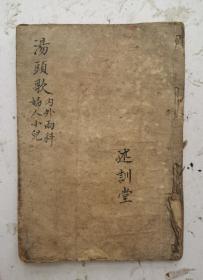 湯頭歌
内外兩科
婦人小兒
述訓堂